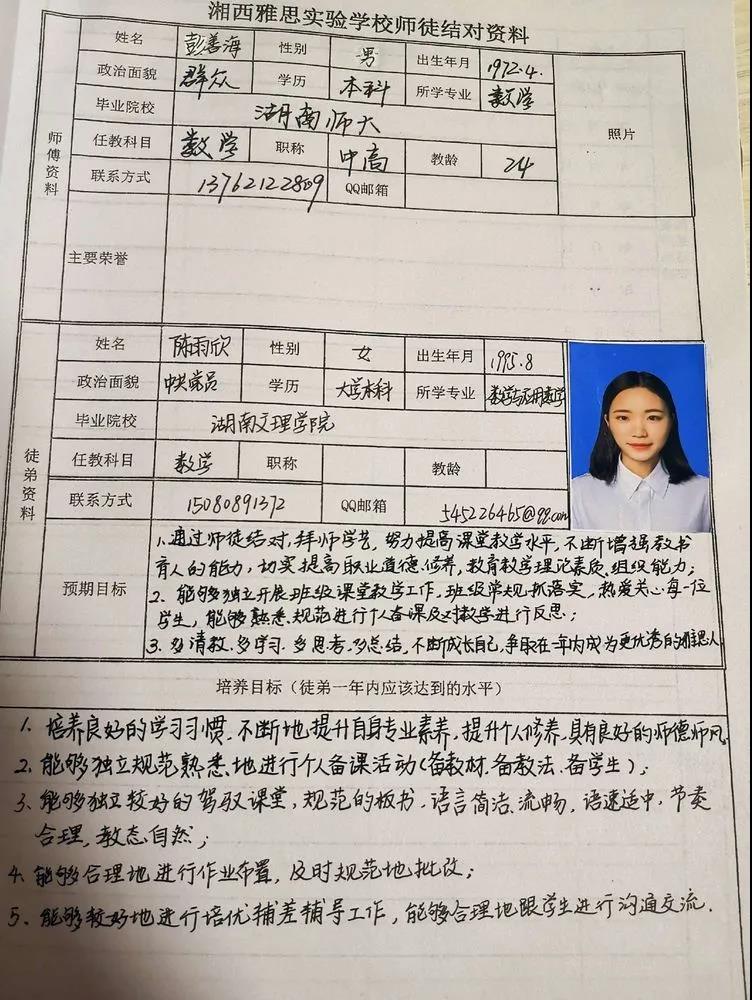 湘西雅思实验学校师徒结对资料
师傅资料
姓名 彭善海 性别 男 出生年月 1972.4.
政治面貌 群众 学历 本科 所学专业 数学
毕业院校 湖南师大
照片
任教科目 数学 职称 中高 教龄 24
联系方式 13762122809 QQ邮箱
主要荣誉
徒弟资料
姓名 陈雨欣 性别 女 出生年月 1995.8
政治面貌 中共党员 学历 大学本科 所学专业 数学与应用数学
毕业院校 湖南文理学院
任教科目 数学 职称 教龄
联系方式 15080891372 QQ邮箱 545226465@qq.com
预期目标
1、通过师徒结对,拜师学艺,努力提高课堂教学水平,不断增强教书
育人的能力,切实提高职业道德、修养,教育教学理论素质、组织能力;
2、能够独立开展班级课堂教学工作,班级常规抓落实,热爱关心每一位
学生,能够熟悉、规范进行个人备课及对教学进行反思;
3、多请教、多学习、多思考、多总结,不断成长自己,争取在一年内成为更优秀的雅思人
培养目标(徒弟一年内应该达到的水平)
1、培养良好的学习习惯,不断地提升自身专业素养,提升个人修养,具有良好的师德师风
2、能够独立规范熟悉地进行个人备课活动(备教材、备教法、备学生);
3、能够独立较好的驾驭课堂,规范的板书,语言简洁、流畅,语速适中,节奏
合理,教态自然;
4、能够合理地进行作业布置,及时规范地批改;
5、能够较好地进行培优辅差辅导工作,能够合理地跟学生进行沟通交流.